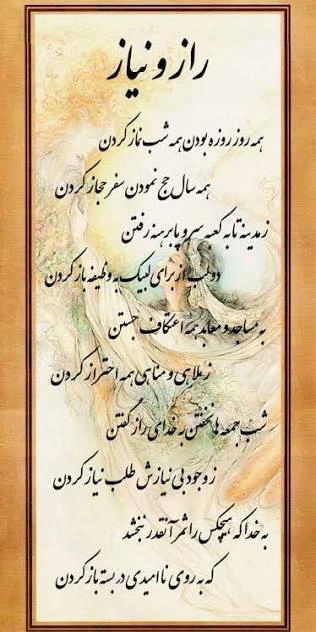 راز و نیاز
همه روز روزه بودن همه شب نماز کردن
همه سال حج نمودن سفر حجاز کردن
ز مدینه تا به کعبه سر و پا برهنه رفتن
دو لب از برای لبیک به وظیفه باز کردن
به مساجد و معابد همه اعتکاف جستن
ز ملاهی و مناهی همه احتراز کردن
شب جمعه ها نخفتن به خدای راز گفتن
ز وجود بی نیازش طلب نیاز کردن
به خدا که هیچکس را ثمر آنقدر نبخشد
که به روی ناامیدی در بسته باز کردن